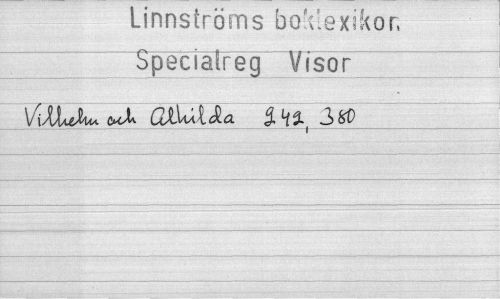 Linnströms boklexikon.
Specialreg Visor
Vilhelm och Alhilda 242, 380